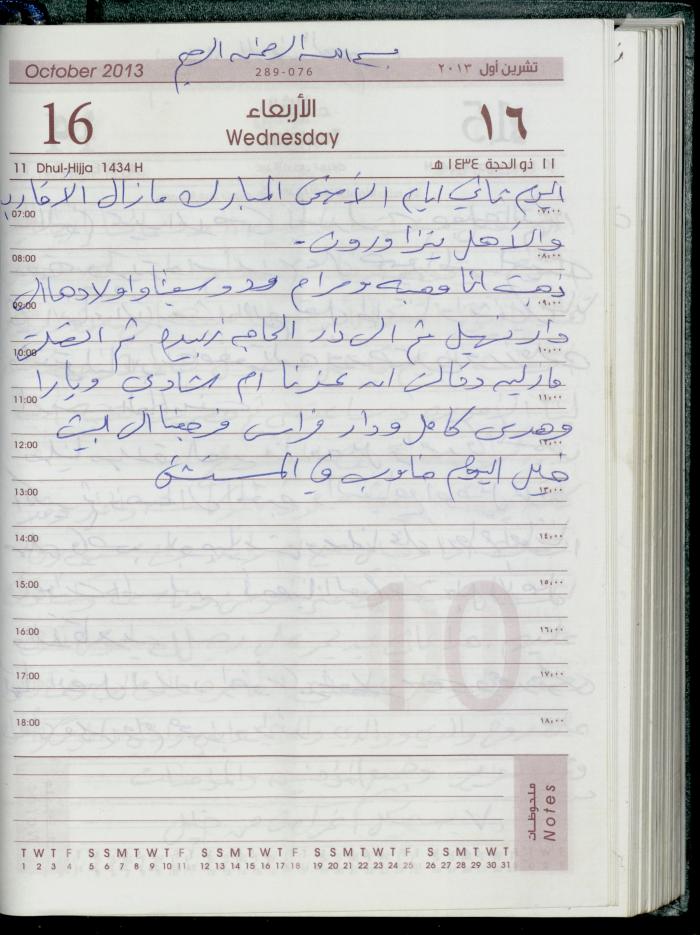 بسم الله الرحمن الرحيم
October 2013 289-076 تشرين أول ٢٠١٣
16 الأربعاء ١٦
Wednesday
11 Dhul-Hijja 1434 H ١١ ذو الحجة ١٤٣٤ هـ
اليوم ثاني ايام الاضحى المبارك مازال الاقارب
07:00 ٠٧:٠٠
والأهل يتزاورون -
08:00 ٠٨:٠٠
ذهبت انا وهبه ومرام واولادها الى
09:00 ٠٩:٠٠
دار نهيل ثم الى دار الحاجه زبيده ثم اتصلت
10:00 ١٠:٠٠
وقالت ان عندنا ام شادي ويارا
11:00 ١١:٠٠
وهدى كامل ودار فراس فرجعنا الى البيت
12:00 ١٢:٠٠
خليل اليوم مناوب في المستشفى
13:00 ١٣:٠٠
14:00 ١٤:٠٠
15:00 ١٥:٠٠
16:00 ١٦:٠٠
17:00 ١٧:٠٠
18:00 ١٨:٠٠
ملحوظات
Notes
T W T F S S M T W T F S S M T W T F S S M T W T F S S M T W T
1 2 3 4 5 6 7 8 9 10 11 12 13 14 15 16 17 18 19 20 21 22 23 24 25 26 27 28 29 30 31